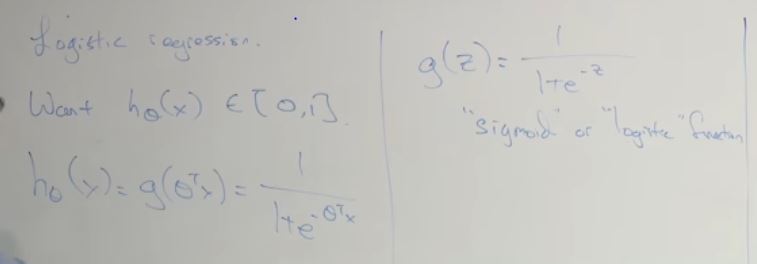 Logistic regression.
Want hθ(x) ∈ [0,1].
hθ(x) = g(θᵀx) = 1 / (1+e^(-θᵀx))
g(z) = 1 / (1+e^(-z))
"sigmoid" or "logistic" function